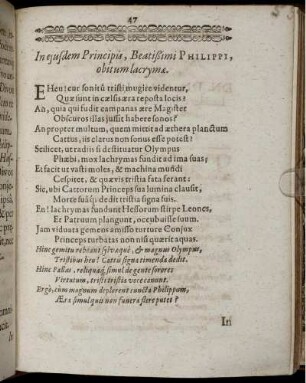 47
In ejusdem Principis, Beatissimi PHILIPPI,
obitum lacrymæ.
EHeu! cur sonitû tristi mugire videntur,
Quæ sunt in cælsis æra reposta locis?
An, quia qui fudit campanas ære Magister
Obscuros illas jussit habere sonos?
An propter multum, quem mittit ad æthera planctum
Cattus, is clarus non sonus esse potest?
Scilicet, ut radiis si destituatur Olympus
Phœbi, mox lachrymas fundit ad ima suas;
Et facit ut vasti moles, & machina mundi
Cespitet, & quævis tristia fata ferant:
Sic, ubi Cattorum Princeps sua lumina clausit,
Morte subactus dedit tristia signa suis.
En! lachrymas fundunt Hessorum stirpe Leones,
Et Patruum plangunt, occubuisse suum.
Jam viduata gemens amisso turture Conjux
Princeps turbatas non nisi quærit aquas.
Hinc gemitu reboant sylvæque, & magnus Olympus,
Tristibus heu! Cattu signa timenda dedit.
Hinc Pallas, reliquæq; simul de gente sorores
Virtutum, tristi tristia voce canunt.
Ergò, cum magnum deplorent cuncta Philippum,
Æra simul quis non funera flere putet?
Iri